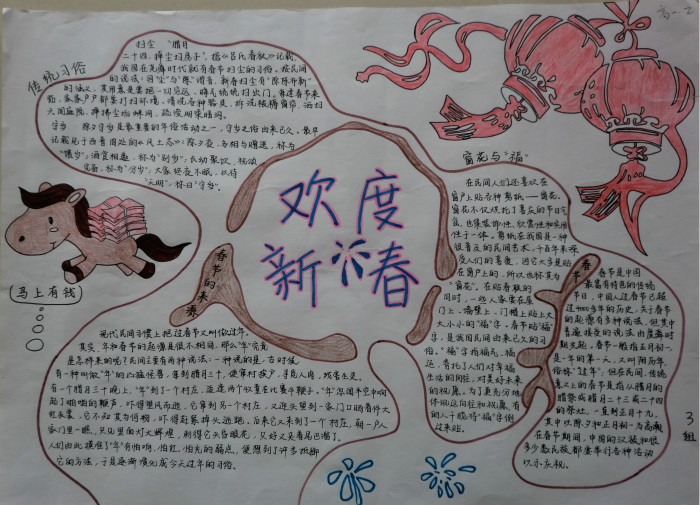 高一.2
传统习俗
扫尘 "腊月
二十四,掸尘扫房子",据《吕氏春秋》记载,
我国在尧舜时代就有春节扫尘的习俗。按民间
的说法:因"尘"与"陈"谐音,新春扫尘有"除陈布新"
的涵义,其用意是要把一切
扫出门。每逢春节来
临,家家户户都要打扫环境,清洗各种器具,拆洗被褥窗帘,洒扫
六闾庭院,掸拂尘垢蛛网,疏浚明渠暗沟。
守岁 除夕守岁是最重要的年俗活动之一,守岁之俗由来已久。最早
记载见于西晋周处的《风土志》:除夕之夜,各相与赠送,称为
"馈岁";酒食相邀,称为"别岁";长幼聚饮,祝颂
完备,称为"分岁";大家终夜不眠,以待
"天明",称曰"守岁"。
马上有钱
欢度
新春
春节的来源
窗花与"福"
在民间人们还喜欢在
窗户上贴各种剪纸——窗花。
窗花不仅烘托了喜庆的节日气
氛,也集装饰性、欣赏性和实用
性于一体。剪纸在我国是一种
很普及的民间艺术,千百年来深
受人们的喜爱,因它大多是贴
在窗户上的,所以也称其为
"窗花"。在贴春联的
同时,一些人家要在屋
门上、墙壁上、门楣上贴上大
大小小的"福"字。春节贴"福"
字,是我国民间由来已久的习
俗。"福"字指福气、福
运,寄托了人们对幸福
生活的向往,对美好未来
的祝愿。为了更充分地
体现这种向往和祝愿,有
的人干脆将"福"字倒
过来贴。
春节
春节是中国
最富有特色的传统
节日,中国人过春节已超
过4000多年的历史,关于春节
的起源有多种说法,但其中
普遍接受的说法由虞舜时
期兴起。春节一般指正月初一,
是一年的第一天,又叫阴历年,
俗称"过年"。但在民间,传统
意义上的春节是指从腊月的
腊祭或腊月二十三或二十四
的祭灶,一直到正月十九,
其中以除夕和正月初一为高潮
在春节期间,中国的汉族和很
多少数民族都要举行各种活动
以示庆祝。
现代民间习惯上把过春节又叫做过年。
其实,年和春节的起源是很不相同,那么"年"究竟
是怎样来的呢?民间主要有两种说法:一种说的是,古时候,
有一种叫做"年"的凶猛怪兽,每到腊月三十,便窜村挨户,寻觅人肉,残害生灵。
有一个腊月三十晚上,"年"到了一个村庄,适逢两个牧童在比赛牛鞭子。"年"忽闻半空中响
起了啪啪的鞭声,吓得望风而逃。它窜到另一个村庄,又迎头望到一家门口晒着件大
红衣裳,它不知其为何物,吓得赶紧掉头逃跑。后来它又来到了一个村庄,朝一户人
家门里一瞧,只见里面灯火辉煌,刺得它头昏眼花,只好又夹着尾巴溜了。
人们由此摸准了"年"有怕响,怕红,怕光的弱点,便想到了许多抵御
它的方法,于是逐渐演化成今天过年的习俗。
3
组